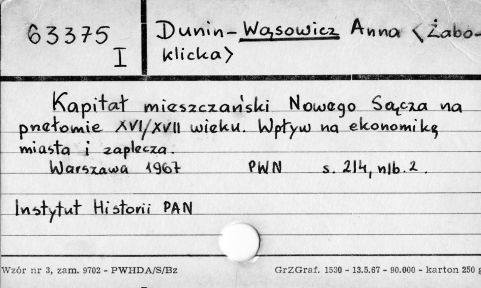 63375
I
Dunin-Wąsowicz Anna <Żabo-
klicka>
Kapitał mieszczański Nowego Sącza na
przełomie XVI/XVII wieku. Wpływ na ekonomikę
miasta i zaplecza.
Warszawa 1967 PWN s. 214, nlb. 2.
Instytut Historii PAN
Wzór nr 3, zam. 9702 - PWHDA/S/Bz GrZGraf. 1530 - 13.5.67 - 90.000 - karton 250 g